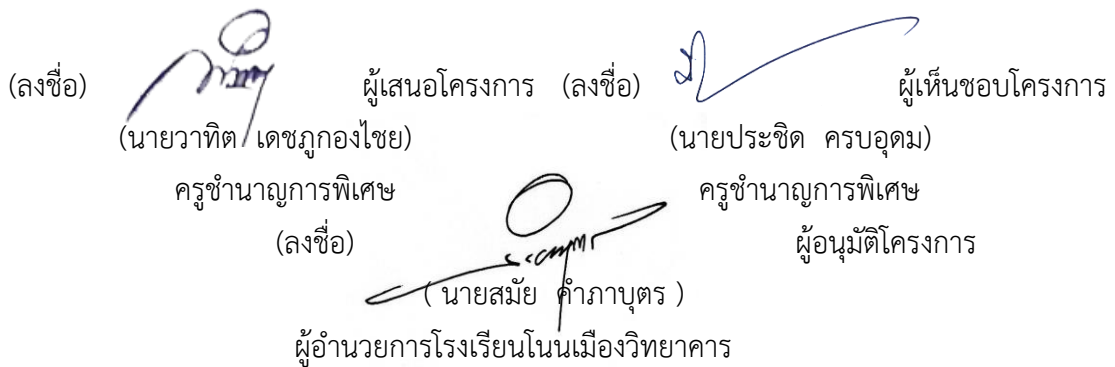 (ลงชื่อ) ผู้เสนอโครงการ (ลงชื่อ) ผู้เห็นชอบโครงการ
(นายวาทิต เดชภูกองไชย) (นายประชิด ครบอุดม)
ครูชำนาญการพิเศษ ครูชำนาญการพิเศษ
(ลงชื่อ) ผู้อนุมัติโครงการ
( นายสมัย คำภาบุตร )
ผู้อำนวยการโรงเรียนโนนเมืองวิทยาคาร